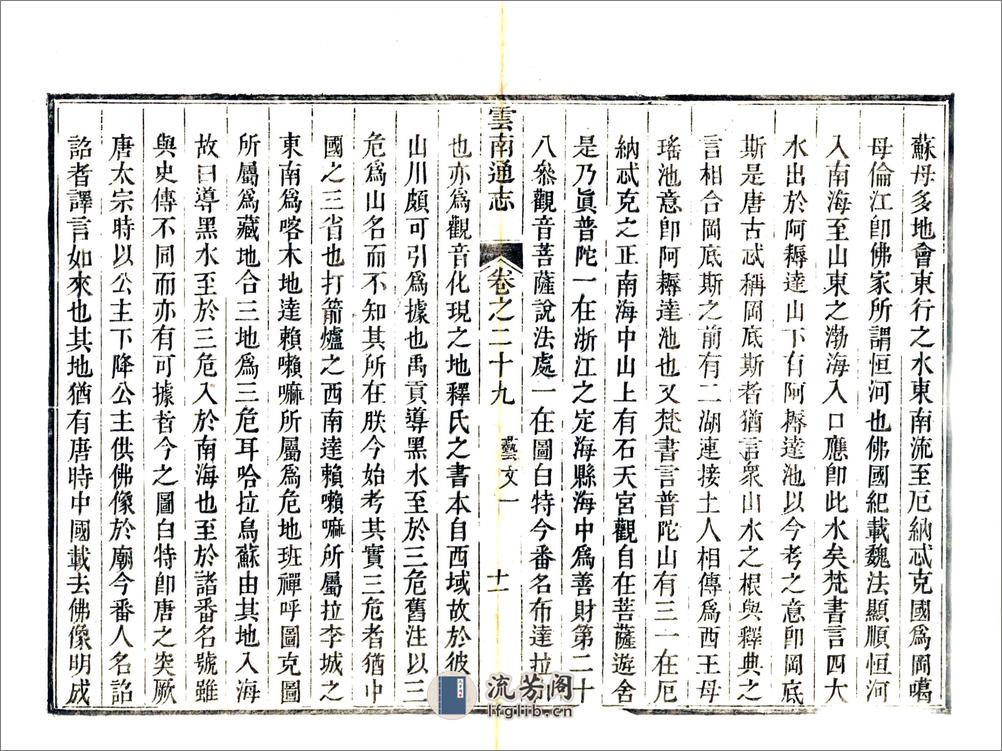 蘇母多地會東行之水東南流至厄納忒克國爲岡噶
母倫江卽佛家所謂恒河也佛國紀載魏法顯順恒河
入南海至山東之渤海入口應卽此水矣梵書言四大
水出於阿耨達山下有阿耨達池以今考之意卽岡底
斯是唐古忒稱岡底斯者猶言衆山水之根與釋典之
言相合岡底斯之前有二湖連接土人相傳爲西王母
瑤池意卽阿耨達池也又梵書言普陀山有三一在厄
納忒克之正南海中山上有石天宮觀自在菩薩遊舍
是乃眞普陀一在浙江之定海縣海中爲善財第二十
八參觀音菩薩說法處一在圖白特今番名布達拉
雲南通志
卷之二十九
藝文一
十一
也亦爲觀音化現之地釋氏之書本自西域故於彼
山川頗可引爲據也禹貢導黑水至於三危舊注以三
危爲山名而不知其所在朕今始考其實三危者猶中
國之三省也打箭爐之西南達賴喇嘛所屬拉李城之
東南爲喀木地達賴喇嘛所屬爲危地班禪呼圖克圖
所屬爲藏地合三地爲三危耳哈拉烏蘇由其地入海
故曰導黑水至於三危入於南海也至於諸番名號雖
與史傳不同而亦有可據者今之圖白特卽唐之突厥
唐太宗時以公主下降公主供佛像於廟今番人名詔
詔者譯言如來也其地猶有唐時中國載去佛像明成
流芳阁
lfglib.cn